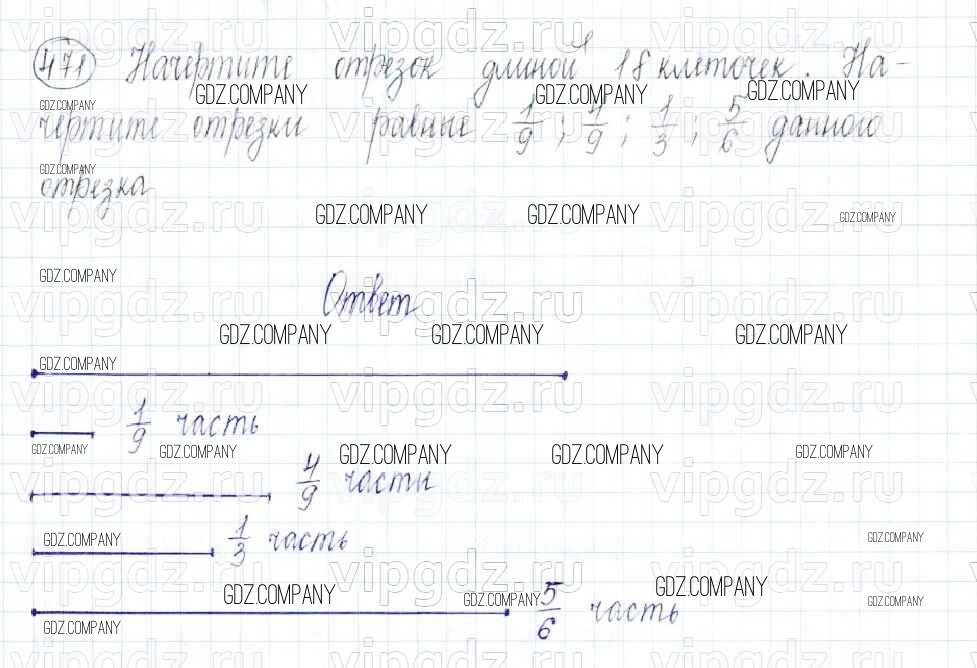 471 Начертите отрезок длиной 18 клеточек. На-
чертите отрезки равные 1/9; 4/9; 1/3; 5/6 данного
отрезка
Ответ
1/9 часть
4/9 часты
1/3 часть
5/6 часть
vipgdz.ru
GDZ.COMPANY